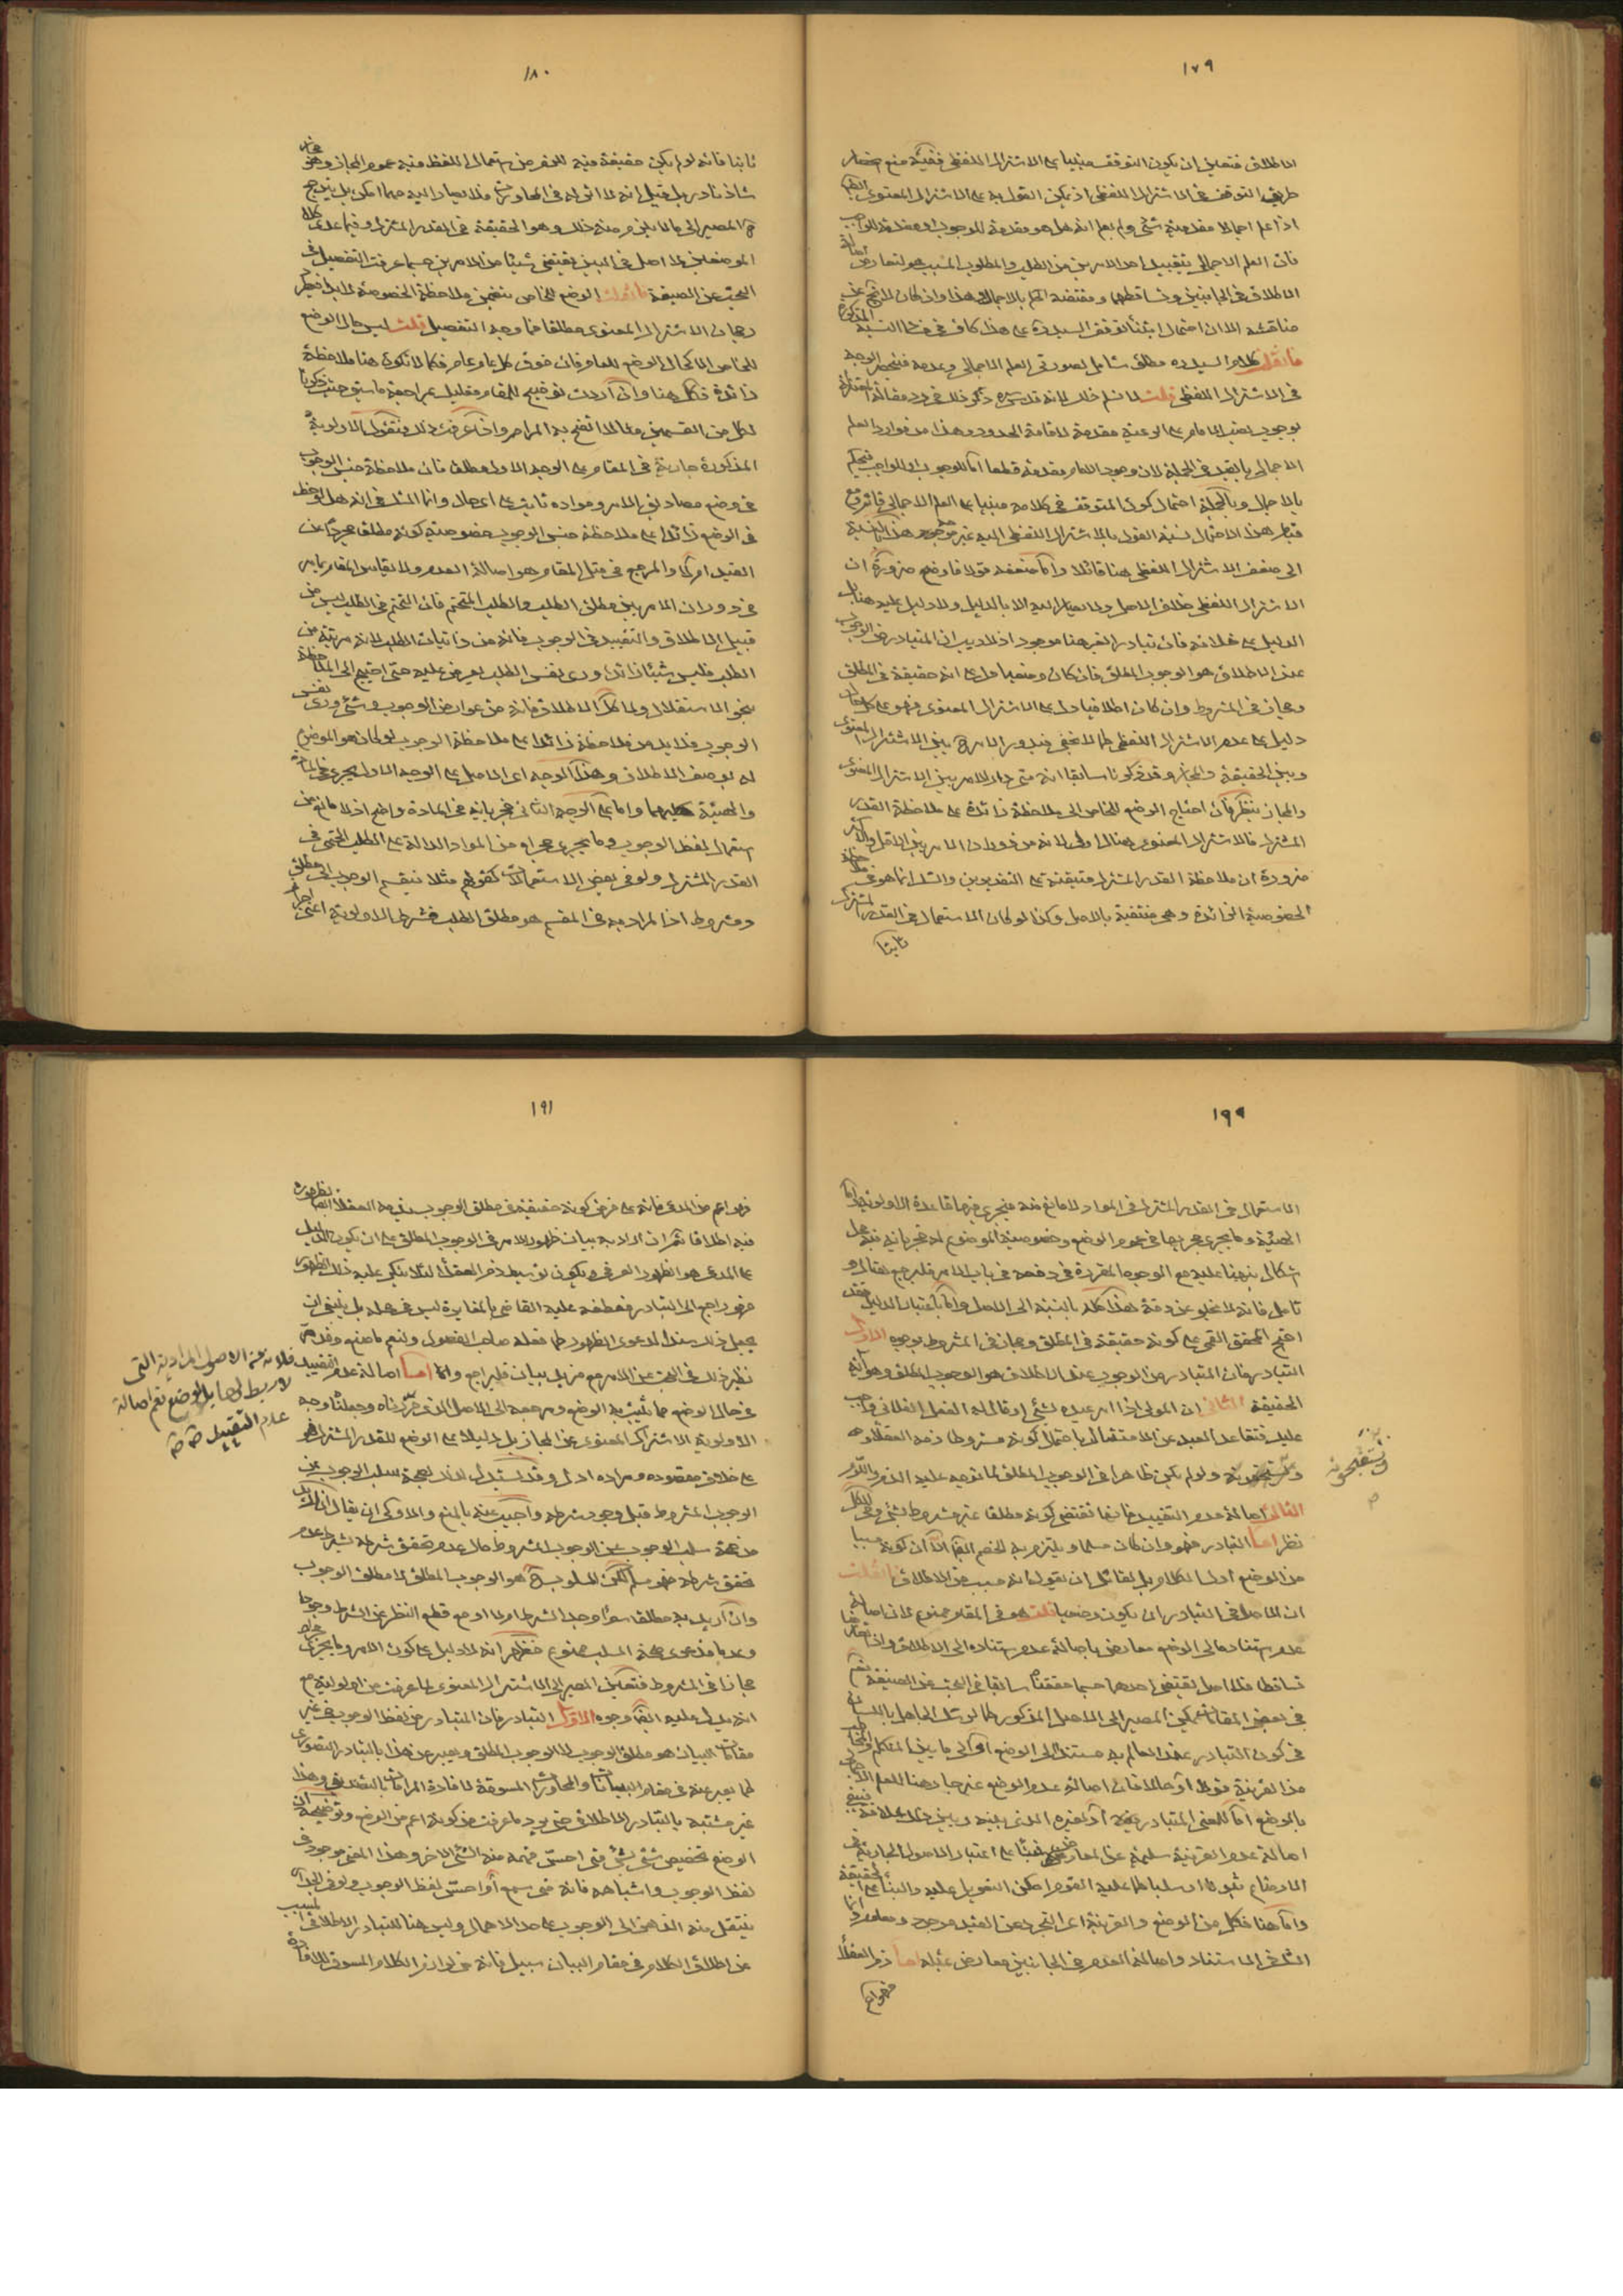 ١٧٩
الاطلاق فتعين ان يكون التوقف مبنيا على الاشتراك اللفظى ففيه منع
طريق التوقف فى الاشتراك اللفظى اذ يمكن القول به على الاشتراك المعنوى
اذا علم اجمالا مقدمية شئ ولم يعلم انه هل هو مقدمة للوجوب او مقدمة للواجب
فان العلم الاجمالى بتقييد احد الامرين من الطلب والمطلوب
الاطلاق فى الجانبين وتساقطهما ومقتضاه الحكم بالاجمال هذا وان كان
مناقشة الا ان احتمال ابتناء توقف السيد ره على هذا كاف فى
فان قلت كلام السيد ره مطلق شامل لصورتى العلم الاجمالى وعدمه فينحصر الوجه
فى الاشتراك اللفظى قلت لا نسلم ذلك لانه قدس سره ذكر ذلك فى رد مقالة المعتزلة
بوجوب نصب الامام على الرعية مقدمة لاقامة الحدود وهذا من موارد العلم
الاجمالى بالتقييد فى الجملة لان وجود الامام مقدمة قطعا اما للوجوب او للواجب فيحكم
بالاجمال وبالجملة احتمال كون المتوقف فى كلامه مبنيا على العلم الاجمالى قائم ومع
قيام هذا الاحتمال نسبة القول بالاشتراك اللفظى اليه غير
الى ضعف الاشتراك اللفظى هنا قائلا واما ضعفه قولا فاوضح ضرورة ان
الاشتراك اللفظى خلاف الاصل ولا يصار اليه الا بالدليل ولا دليل عليه هنا بل
الدليل على خلافه فان تبادر الغير هنا موجود اذ لا ريب ان المتبادر من الوجوب
عند الاطلاق هو الوجوب المطلق فان كان وضعيا دل على انه حقيقة فى المطلق
ومجاز فى المشروط وان كان اطلاقيا دل على الاشتراك المعنوى وهو على كل حال
دليل على عدم الاشتراك اللفظى كما لا يخفى فيدور الامر ح بين الاشتراك المعنوى
وبين الحقيقة والمجاز وقد ذكرنا سابقا انه متى دار الامر بين الاشتراك المعنوى
والمجاز ينظر فان احتاج الوضع للخاص الى ملاحظة زائدة على ملاحظة القدر
المشترك فالاشتراك المعنوى هنالك اولى لانه من دوران الامر بين الاقل والاكثر
ضرورة ان ملاحظة القدر المشترك متيقنة على التقديرين والشك انما هو فى ملاحظة
الخصوصية الزائدة وهى منتفية بالاصل وكذا لو كان الاستعمال فى القدر المشترك
ثابتا
١٨٠
ثابتا فانه لو لم يكن حقيقة فيه للغير من استعمال اللفظ فيه عموم المجاز وهو
شاذ نادر بل قيل انه لا اثر له فى المحاورات فلا يصار اليه مهما امكن بل يترجح
ح المصير الى ما لا يلزم منه ذلك وهو الحقيقة فى القدر المشترك وفيما عدا
الموضعين لا اصل فى البين يقتضى شيئا من الامرين حسبما عرفت التفصيل فى
البحث عن الصيغة فان قلت الوضع للخاص يتضمن ملاحظة الخصوصية لا بد فيحكم
رجحان الاشتراك المعنوى مطلقا فما وجه التفصيل قلت ليس حال الوضع
للخاص الا كحال الوضع للعام فان فوق كل عام عام فكما لا تكون هنا ملاحظة
زائدة فكك هنا وان اردت توضيح المقام فعليك بمراجعة ما سبق
لكل من القسمين مثالا اتضح به المرام واذا عرفت ذلك فنقول الاولوية
المذكورة جارية فى المقام على الوجه الاول مطلقا فان ملاحظة جنس الوجوب
فى وضع مصاديق الامر ومواده ثابت على اى حال وانما الشك فى انه هل لوحظ
فى الوضع زائدا على ملاحظة جنس الوجوب خصوصية كونه مطلقا مجردا عن
القيد ام لا والمرجع فى مثل المقام هو اصالة العدم ولا يقاس المقام بما مر
فى دوران الامر بين مطلق الطلب والطلب المتحتم فان التحتم فى الطلب ليس من
قبيل الاطلاق والتقييد فى الوجوب فانه من ذاتيات الطلب لانه مرتبة من
الطلب فليس شيئا زائدا ورى نفس الطلب يعرض عليه حتى احتيج الى الملاحظة
بنحو الاستقلال ولا كك الاطلاق فانه من عوارض الوجوب وشئ ورى نفس
الوجوب فلا بد من ملاحظة زائدا على ملاحظة الوجوب لو كان هو الموضوع
له بوصف الاطلاق وهذا الوجه اى الاصل على الوجه الاول يجرى فى المادة
والهيئة كليهما واما على الوجه الثانى فجريانه فى المادة واضح اذ لا مانع من
استعمال لفظ الوجوب وما يجرى مجراه من المواد الدالة على الطلب الحتمى فى
القدر المشترك ولو فى بعض الاستعمالات كقولهم مثلا ينقسم الوجوب الى مطلق
ومشروط اذا المراد به فى المقسم هو مطلق الطلب فشرط الاولوية اعنى احراز
١٩٩
الاستعمال فى القدر المشترك فى المواد لا مانع منه فيجرى فيها قاعدة الاولوية واما
الهيئة وما يجرى مجريها فى عموم الوضع وخصوصية الموضوع له فجريانه فيه محل
اشكال نبهنا عليه مع الوجوه المقررة فى دفعه فى باب الامر فليرجع هنالك و
تامل فانه لا يخلو عن دقة هذا كله بالنسبة الى الاصل واما باعتبار الدليل فقد
احتج المحقق القمى على كونه حقيقة فى المطلق ومجاز فى المشروط بوجوه الاول
التبادر فان المتبادر من الوجوب عند الاطلاق هو الوجوب المطلق وهو آية
الحقيقة الثانى ان المولى اذا امر عبده بشئ او قال له الفعل الفلانى واجب
عليك فتقاعد العبد عن الامتثال باحتمال كونه مشروطا ذمه العقلاء
ولو لم يكن ظاهرا فى الوجوب المطلق لما توجه عليه الذم واللوم
الثالث اصالة عدم التقييد فانها تقتضى كونه مطلقا غير مشروط بشئ وفى الكل
نظر اما التبادر فهو وان كان مسلما ويلتزم به الخصم ايضا الا ان كونه مسببا
من الوضع اول الكلام بل لقائل ان يقول انه مسبب من الاطلاق فان قلت
ان الاصل فى التبادر ان يكون وضعيا قلت هو فى المقام ممنوع لان اصالة
عدم استناده الى الوضع معارض باصالة عدم استناده الى الاطلاق واذا تعارضا
تساقطا فلا اصل يقتضى احدهما حسبما حققنا سابقا فى البحث عن الصيغة نعم
فى بعض المقامات يمكن المصير الى الاصل المذكور كما لو شك الجاهل باللسان
فى كون التبادر عند العالم به مستندا الى الوضع او الى ما بين المتكلم والمخاطب
من القرينة مقالا او حالا فان اصالة عدم الوضع غير جار هنا للعلم الاجمالى
بالوضع اما للمعنى المتبادر فيه او لغيره الذى بينه وبين ذلك علاقة فيبقى
اصالة عدم القرينة سليمة عن المعارض فبناء على اعتبار الاصول الجارية فى
الاوضاع ثبوتا او سلبا كما عليه القوم امكن التعويل عليه والبناء على الحقيقة
واما هنا فكل من الوضع والقرينة اعنى التجرد عن القيد موجود ومعلوم وانما
الشك فى الاستناد واصالة العدم فى الجانبين معارض بمثله اما ذم العقلاء
فهو اعم
ويستقبحونه
١٩١
فهو اعم من المدعى فانه على فرض كونه حقيقة فى مطلق الوجوب يذمه العقلاء ايضا لظهوره
فيه اطلاقا ثم ان اراد به بيان ظهور الامر فى الوجوب المطلق على ان يكون الدليل
على المدعى هو الظهور العرفى ويكون توسيط ذم العقلاء لئلا ينكر عليه ذلك الظهور
فهو راجع الى التبادر فعطفه عليه القاضى بالمغايرة ليس فى محله بل ينبغى ان
يجعل ذلك سندا لدعوى الظهور كما فعله صاحب الفصول ولنعم ما صنع وقد مر
نظير ذلك فى البحث عن الامر مع مزيد بيان فليراجع واما اصالة عدم التقييد
فى حال الوضع مما يثبت به الوضع ومرجعه الى الاصل الذى قررناه وجعلناه وجه
الاولوية الاشتراك المعنوى عن المجاز بل دليلا على الوضع للقدر المشترك فهو
على خلاف مقصوده ومراده ادل وقد يستدل لذلك بصحة سلب الوجوب عن
الوجوب المشروط قبل وجود شرطه واجيب عنه بالمنع والاولى ان يقال ان اراد
من صحة سلب الوجوب عن الوجوب المشروط حال عدم تحقق شرطه بشرط عدم
تحقق شرطه فهو مسلم لكن المسلوب ح هو الوجوب المطلق لا مطلق الوجوب
وان اريد به مطلقا سواء وجد الشرط ام لا او مع قطع النظر عن الشرط وجودا
وعدما فدعوى صحة السلب ممنوع فظهر انه لا دليل على كون الامر وما يجرى مجراه
مجازا فى المشروط فتعين المصير الى الاشتراك المعنوى لما عرفت من اولوليته مع
انه يدل عليه ايضا وجوه الاول التبادر فان المتبادر من لفظ الوجوب فى غير
مقامات البيان هو مطلق الوجوب لا الوجوب المطلق ويعبر عن هذا بالتبادر التصورى
كما يعبر عنه فى مقام البيانات والمحاورات المسوقة لافادة المرامات بالتصديقى وهذا
غير مشتبه بالتبادر الاطلاقى حتى يرد ما عرفت من كونه اعم من الوضع وتوضيحه ان
الوضع تخصيص شئ بشئ متى احس فهم منه الشئ الاخر وهذا المعنى موجود فى
لفظ الوجوب واشباهه فانه متى سمع او احس لفظ الوجوب ولو فى الجدار
ينتقل منه الذهن الى الوجوب على حد الاجمال وليس هنا للتبادر الاطلاقى المسبب
عن اطلاق الكلام فى مقام البيان سبيل فانه من لوازم الكلام المسوق للافادة
فلانه من الاصول المرادية التى
لا ربط لها بالوضع نعم اصالة
عدم التقييد صح صح